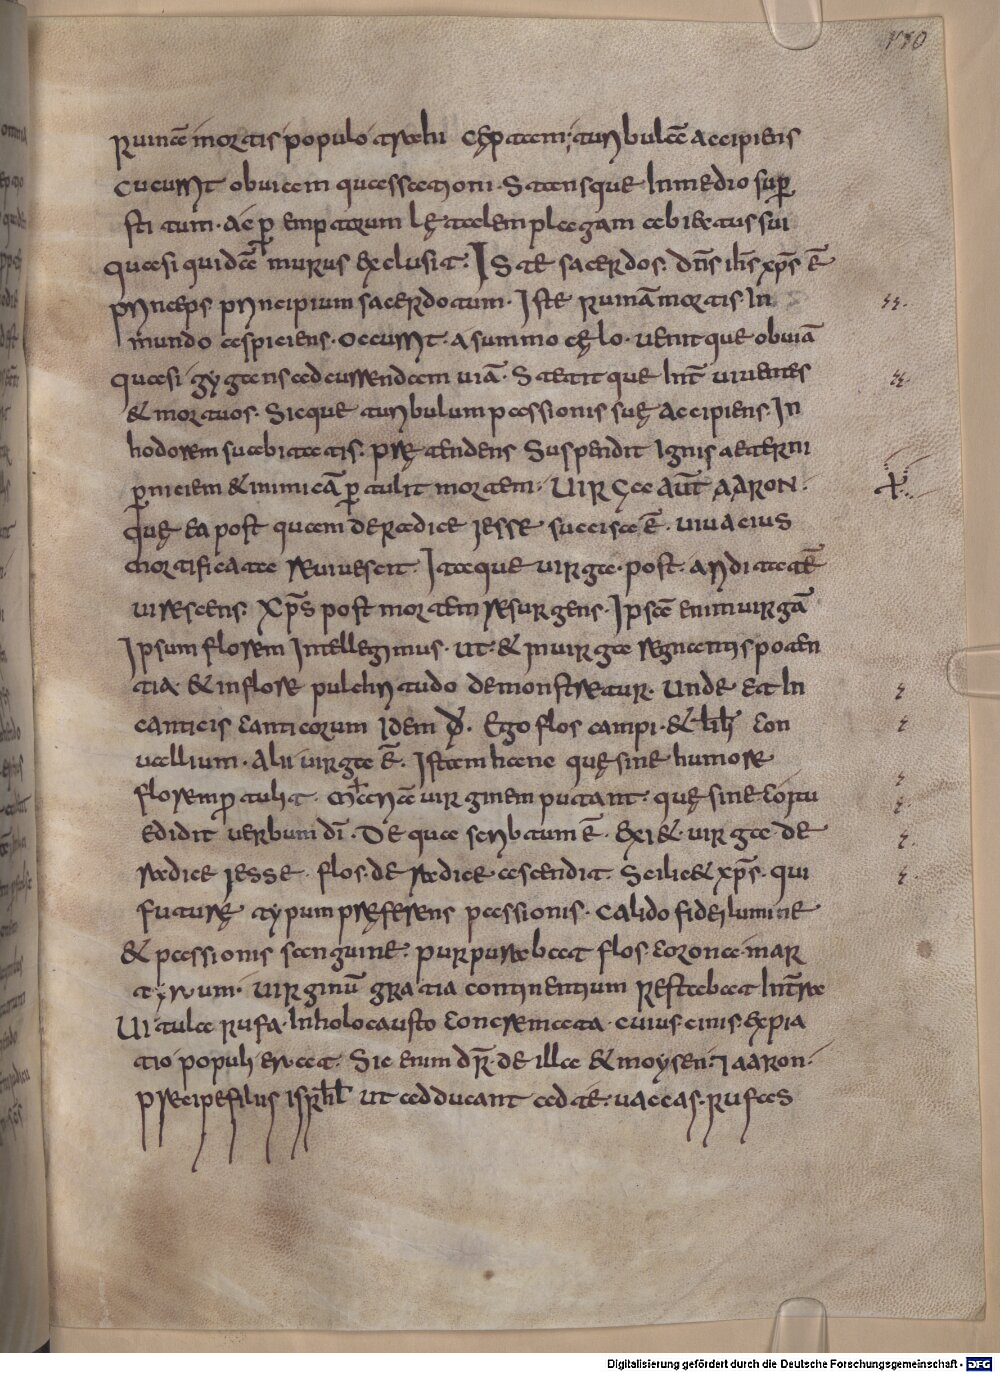 110
Ruinā mortis populo trahi cęptam; turibulū accipiens
cucurrit obviam quassationi. Stansque in medio sup̄
stitum. ac p̄ emptorum lętalem plagam ab ira et tus sui
quasi quidā murus exclusit. Iste sacerdos. dn̄s ih̄s xp̄s ē
princeps principium sacerdotum. Iste ruinā mortis. In
mundo aspiciens. occurrit. A summo cęlo. venitque obviā
quasi gygans ad currendam viā. Stetitque int̄ viventes
& mortuos. Sicque turibulum passionis suę accipiens. In
hodorem suabitatis. prętendens suspendit ignis aeterni
p̄niciem & inimicā p̄tulit mortem. Virga aūt AARON.
quę ea post quam de radice iesse succisa ē. viva cius
mortificata revivescit. Itaque virga. post. ariditatē
virescens. xp̄s post mortem resurgens. Ipsā enim virgā
Ipsum florem intellegimus. ut & in virga regnantis poten
tia. & in flore pulchritudo demonstretur. Unde et in
canticis canticorum idem d̄. Ego flos campi. & lili con
vallium. Alii virga ē. Istam hanc quę sine humore
florem p̄tulit. Mariā virginem putant. quę sine coitu
edidit verbum dī. De qua scribtum ē. Exi& virga de
radice iesse. flos. de radice ascendit. Scilic& xp̄s. qui
futurę typum pręferens passionis. calido fidei lumine
& passionis sanguine. purpurabat flos. corona. mar
tyrum. virginū gratia continentium restabat int̄ra
Vitula rufa. In holocausto concremata. cuius. cinis. expia
tio populi erat. Sic enim dr̄. de illa & moysen. & aaron.
Pręcipe filiis isrl̄ ut adducant ad te. vaccas. rufas
Digitalisierung gefördert durch die Deutsche Forschungsgemeinschaft - DFG